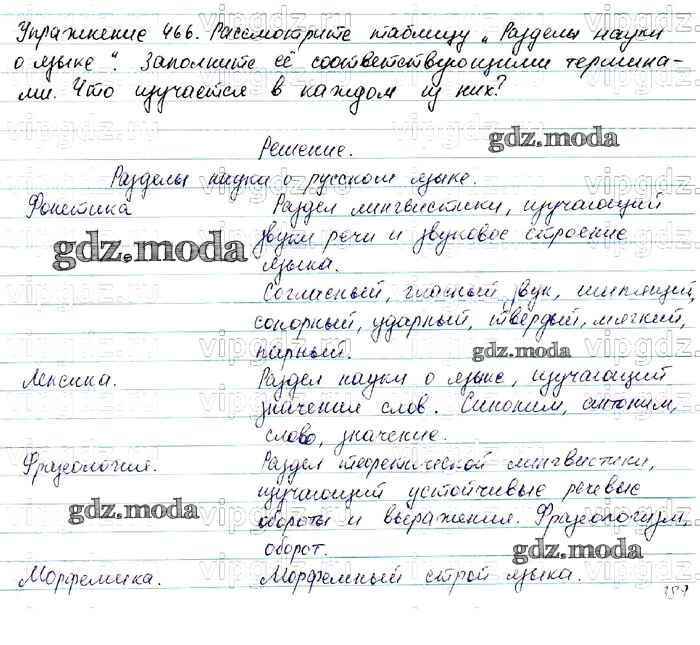 Упражнение 466. Рассмотрите таблицу „Разделы науки
о языке“. Заполните её соответствующими термина-
ми. Что изучается в каждом из них?
gdz.moda
Решение.
Разделы науки о русском языке.
Фонетика Раздел лингвистики, изучающий
звуки речи и звуковое строение
gdz.moda
языка.
Согласный, гласный, звук, шипящий,
сонорный, ударный, твёрдый, мягкий,
парный.
gdz.moda
Лексика. Раздел науки о языке, изучающий
значения слов. Синоним, антоним,
слово, значение.
Фразеология. Раздел теоретической лингвистики,
изучающий устойчивые речевые
gdz.moda
обороты и выражения. Фразеологизм,
оборот.
gdz.moda
Морфемика. Морфемный строй языка.